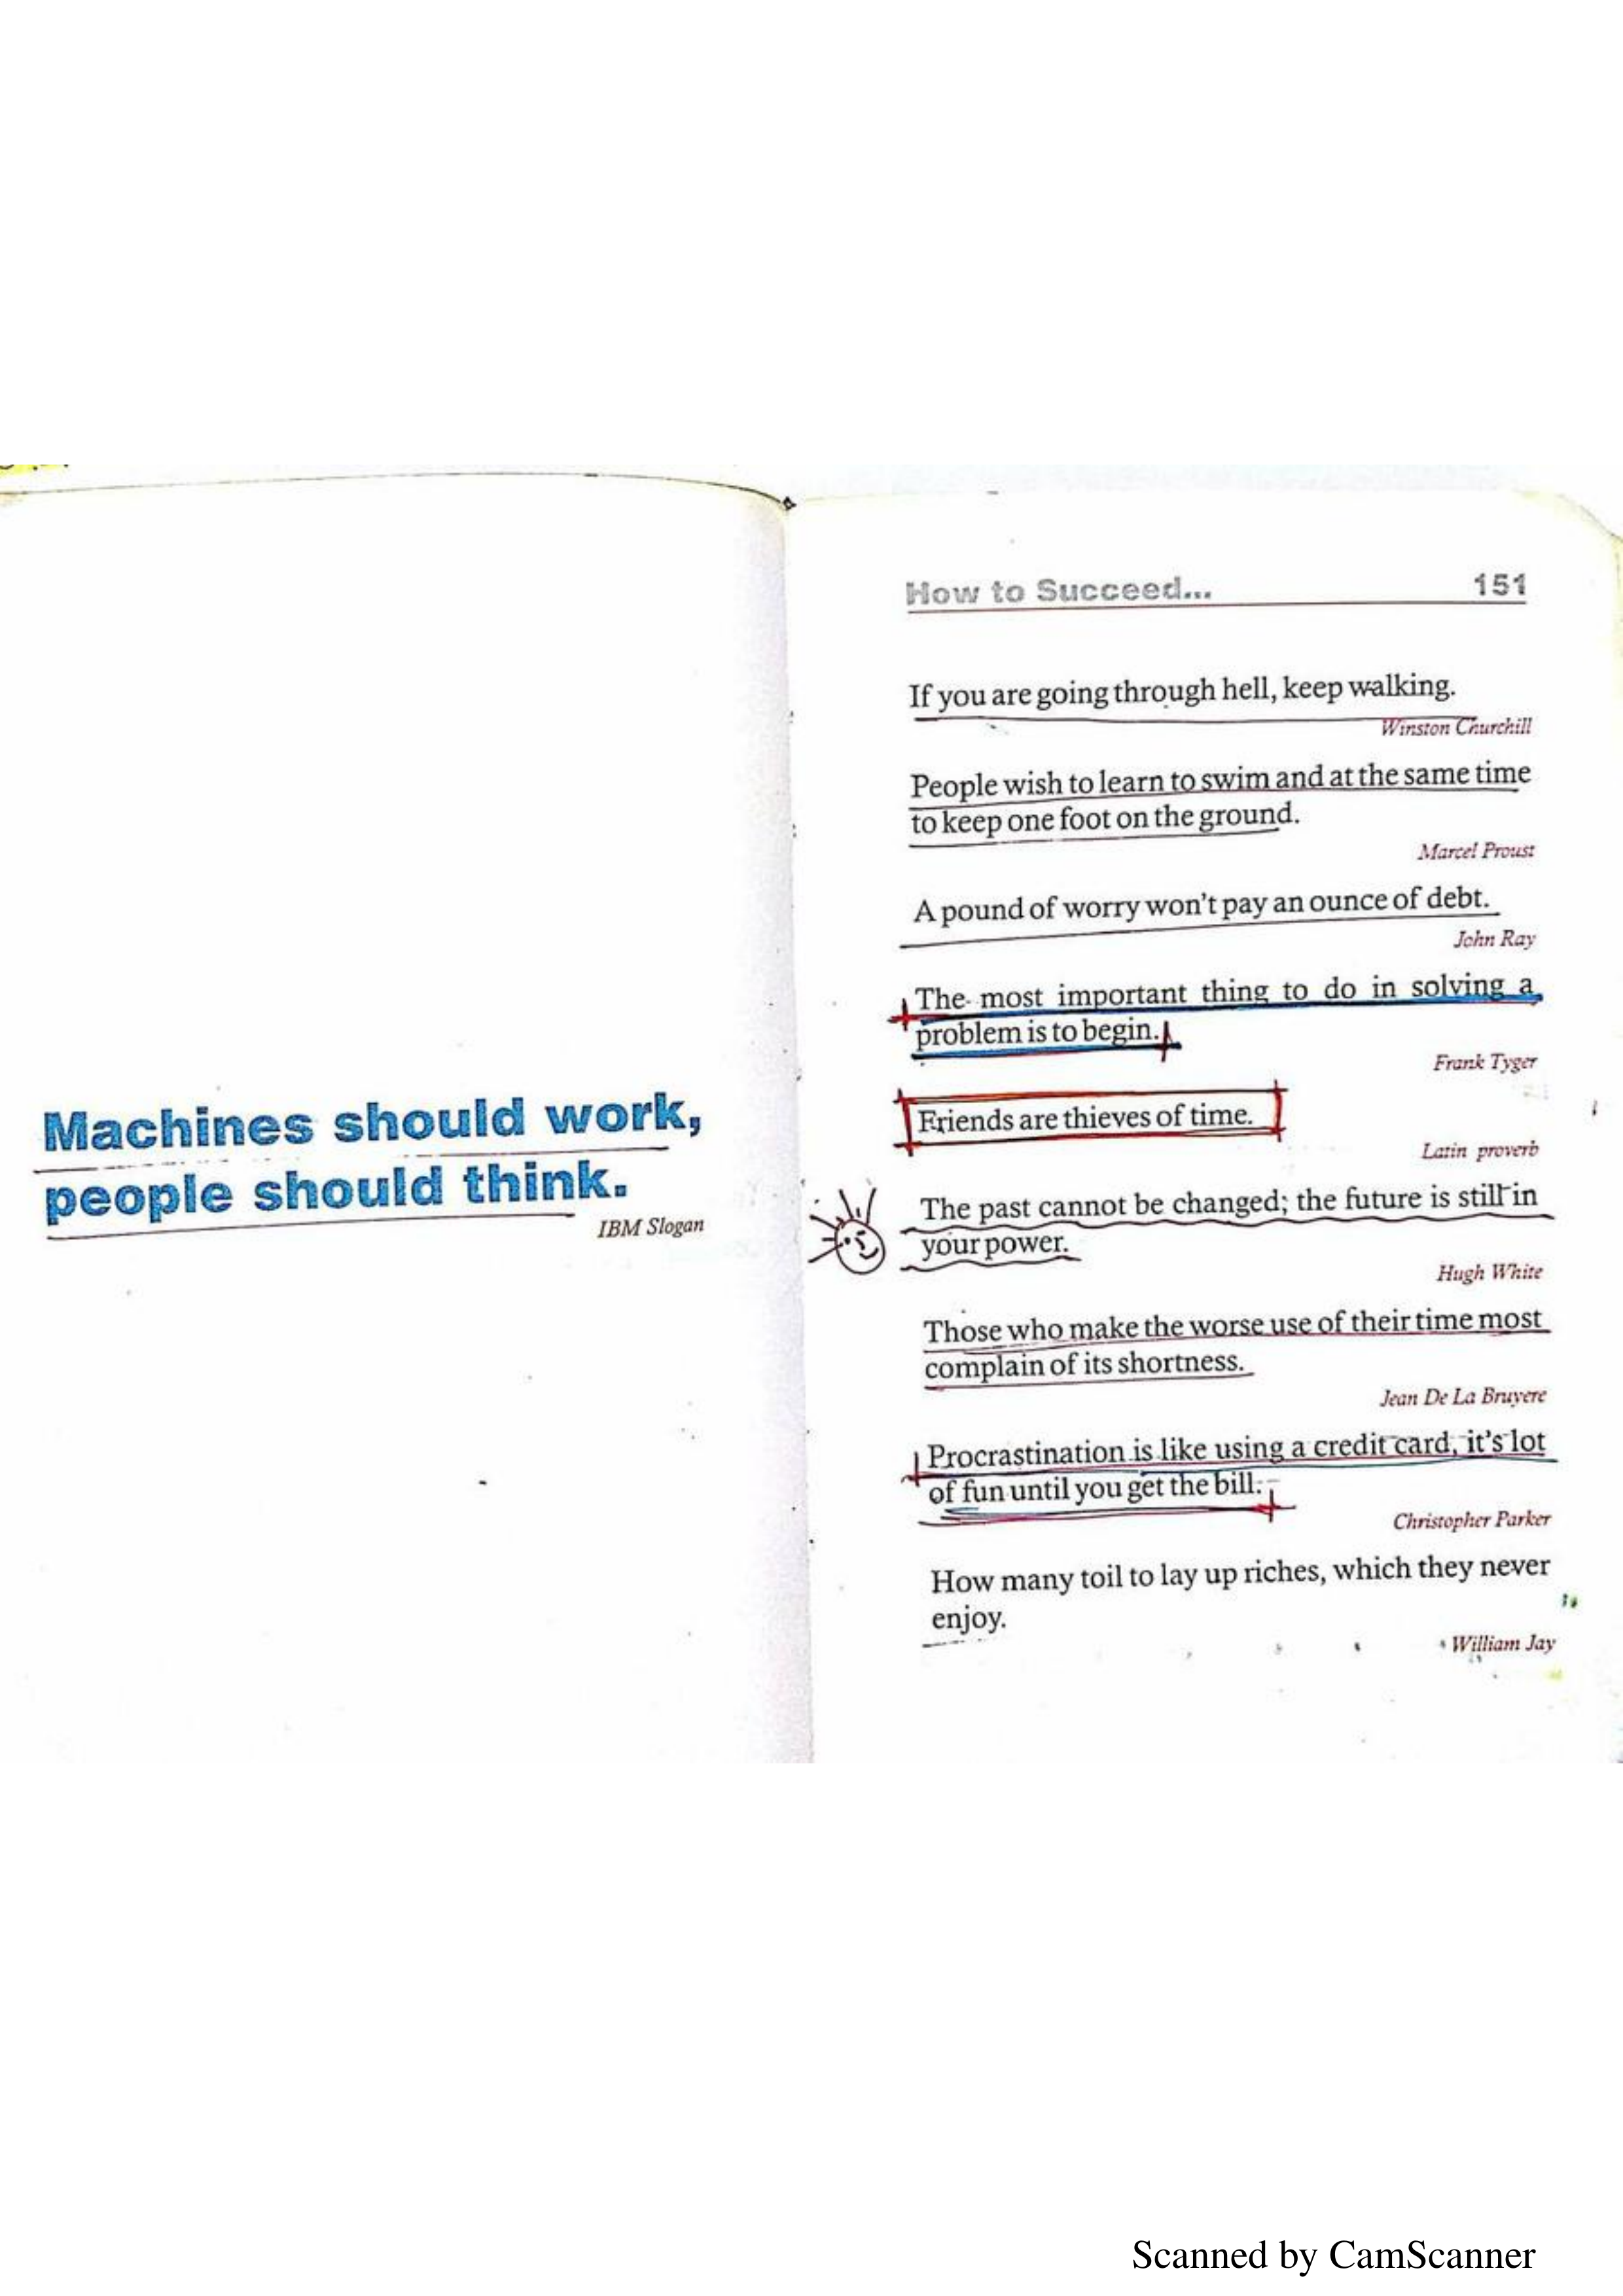 Machines should work,
people should think.
IBM Slogan
How to Succeed... 151
If you are going through hell, keep walking.
Winston Churchill
People wish to learn to swim and at the same time
to keep one foot on the ground.
Marcel Proust
A pound of worry won't pay an ounce of debt.
John Ray
The most important thing to do in solving a
problem is to begin.
Frank Tyger
Friends are thieves of time.
Latin proverb
The past cannot be changed; the future is still in
your power.
Hugh White
Those who make the worse use of their time most
complain of its shortness.
Jean De La Bruyere
Procrastination is like using a credit card, it's lot
of fun until you get the bill.
Christopher Parker
How many toil to lay up riches, which they never
enjoy.
William Jay
Scanned by CamScanner